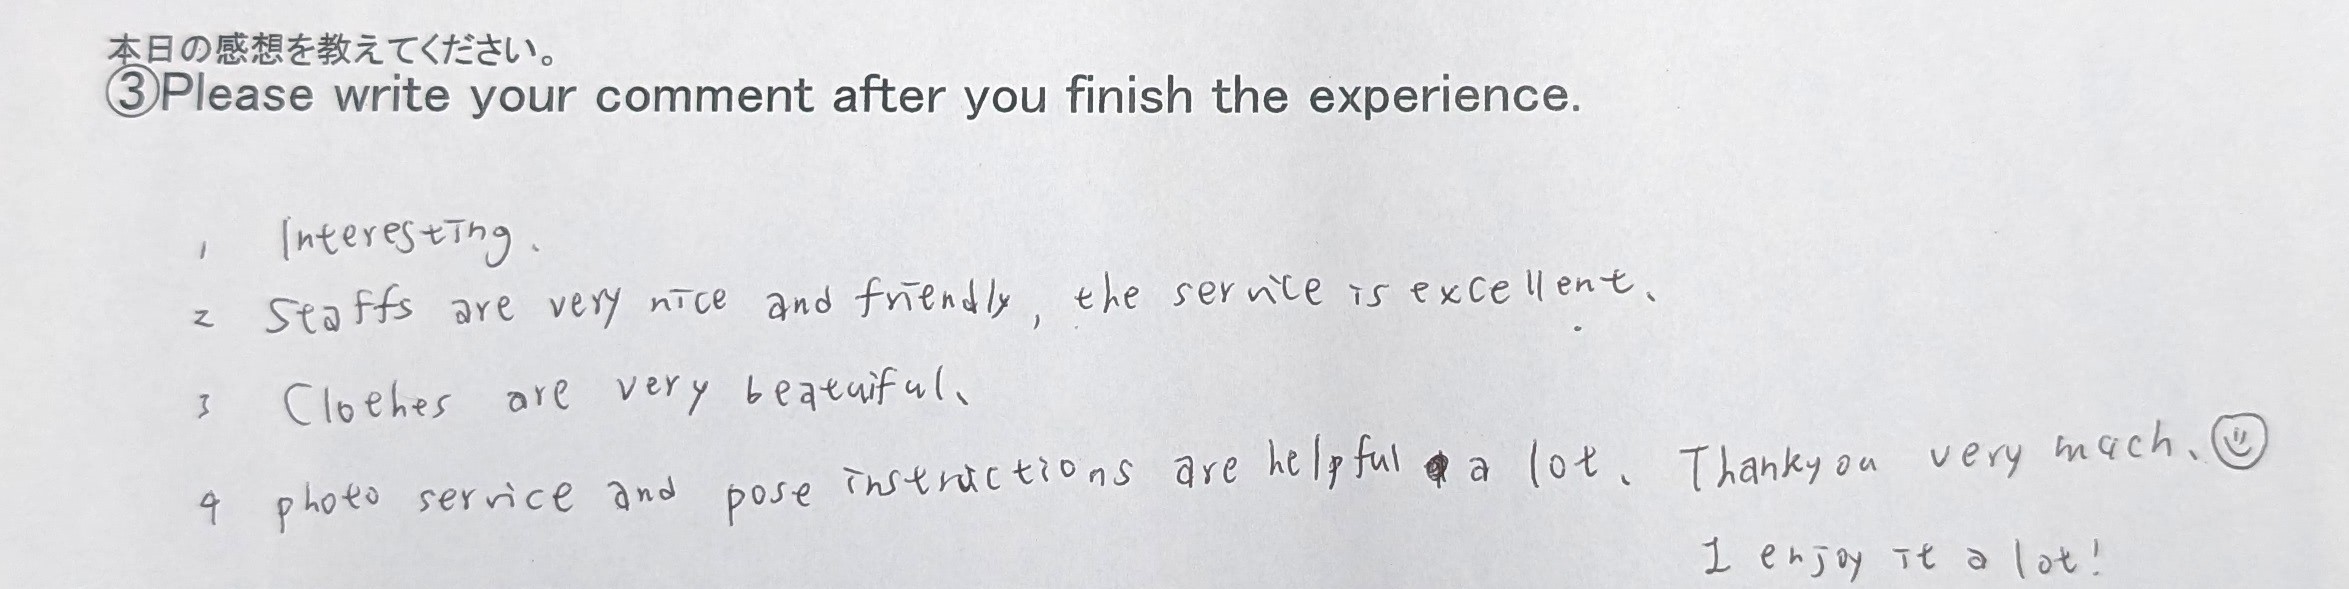 本日の感想を教えてください。
③Please write your comment after you finish the experience.
1 Interesting.
2 Staffs are very nice and friendly, the service is excellent.
3 Clothes are very beatuiful.
4 photo service and pose instructions are helpful a lot. Thankyou very much. ☺
I enjoy it a lot!